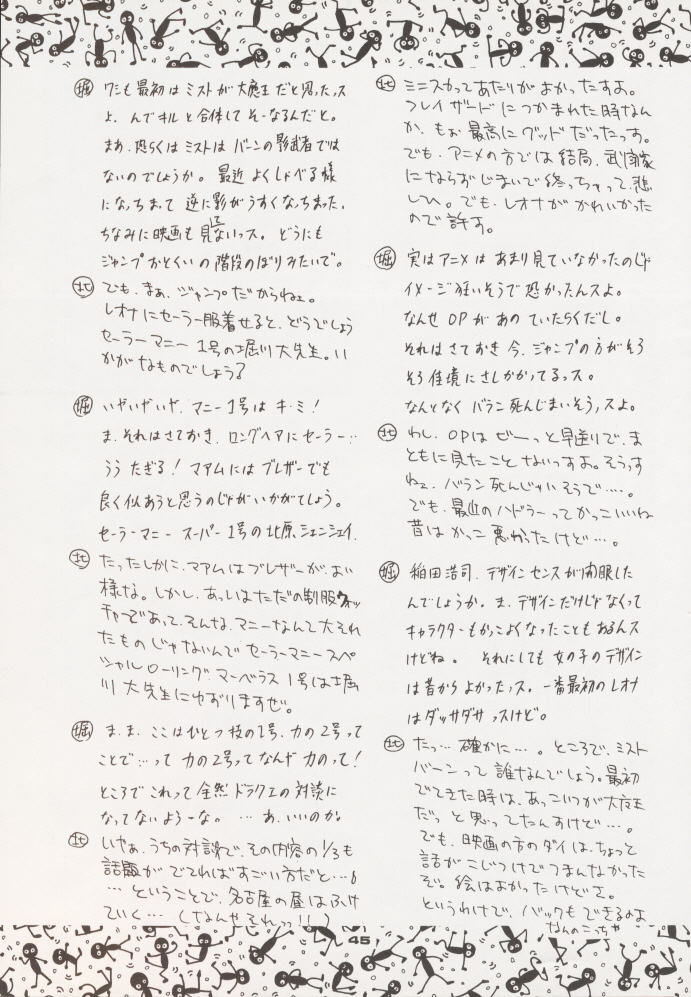 北 ミニスカってあたりがよかったすよ。
フレイザードにつかまれた時なん
か、もぉ最高にグッドだったっす。
でも、アニメの方では結局、武闘家
にならずじまいで終っちゃって、悲
しひ。でも、レオナがかわいかった
ので許す。
堀 実はアニメはあまり見ていなかったのじゃ
イメージ狂いそうで恐かったんスよ。
なんせOPがあのていたらくだし。
それはさておき今、ジャンプの方がそろ
そろ佳境にさしかかってるっス。
なんとなくバラン死んじまいそうっスよ。
北 わし、OPはぜーっと早送りで、ま
ともに見たことないっすよ。そうっす
ねェ、バラン死んじゃいそうで…。
でも、最近のハドラーってかっこいいね
昔はかっこ悪かったけど…。
堀 稲田浩司、デザインセンスが開眼した
んでしょうか。ま、デザインだけじゃなくって
キャラクターもかっこよくなったこともあるんス
けどね。 それにしても女の子のデザイン
は昔からよかったっス。一番最初のレオナ
はダッサダサっスけど。
北 たっ…確かに…。ところで、ミスト
バーンって誰なんでしょう。最初
でてきた時は、あっこいつが大魔王
だっと思ってたんすけど…。
でも、映画の方のダイは、ちょっと
話がこじつけでつまんなかった
ぞ。絵はよかったけどさ。
というわけで、バックもできるのよ
なんのこっちゃ
堀 ワシも最初はミストが大魔王だと思ったっス
よ、んでキルと合体してそーなるんだと。
まあ、恐らくはミストはバーンの影武者では
ないのでしょうか。最近よくしゃべる様
になっちまって逆に影がうすくなっちまった。
ちなみに映画も見てないっス。どうにも
ジャンプおとくいの階段のぼりみたいで。
北 でも、まぁ、ジャンプだからねェ。
レオナにセーラー服着せると、どうでしょう
セーラーマニー1号の堀川大先生。い
かがなものでしょう?
堀 いやいやいや、マニー1号はキ・ミ!
ま、それはさておき、ロングヘアにセーラー…
うう たぎる!マアムにはブレザーでも
良く似あうと思うのじゃがいかがでしょう。
セーラーマニー スーパー1号の北原シェンシェイ、
北 たったしかに、マアムはブレザーが、よい
様な。しかし、あっしはただの制服ウォッ
チャーであって、そんな、マニーなんて大それ
たものじゃないんでセーラーマニースペ
シャルローリングマーベラス1号は堀
川大先生にゆずりますぜ。
堀 ま、ま、ここはひとつ技の1号、力の2号って
ことで…って力の2号ってなんや力のって!
ところでこれって全然ドラクエの対談に
なってないよーな。 …あ、いいのか。
北 いやぁ、うちの対談で、その内容の1/3も
話題がでてればすごい方だと…。
…ということで、名古屋の昼はふけ
ていく…(なんやそれっ!!)
45